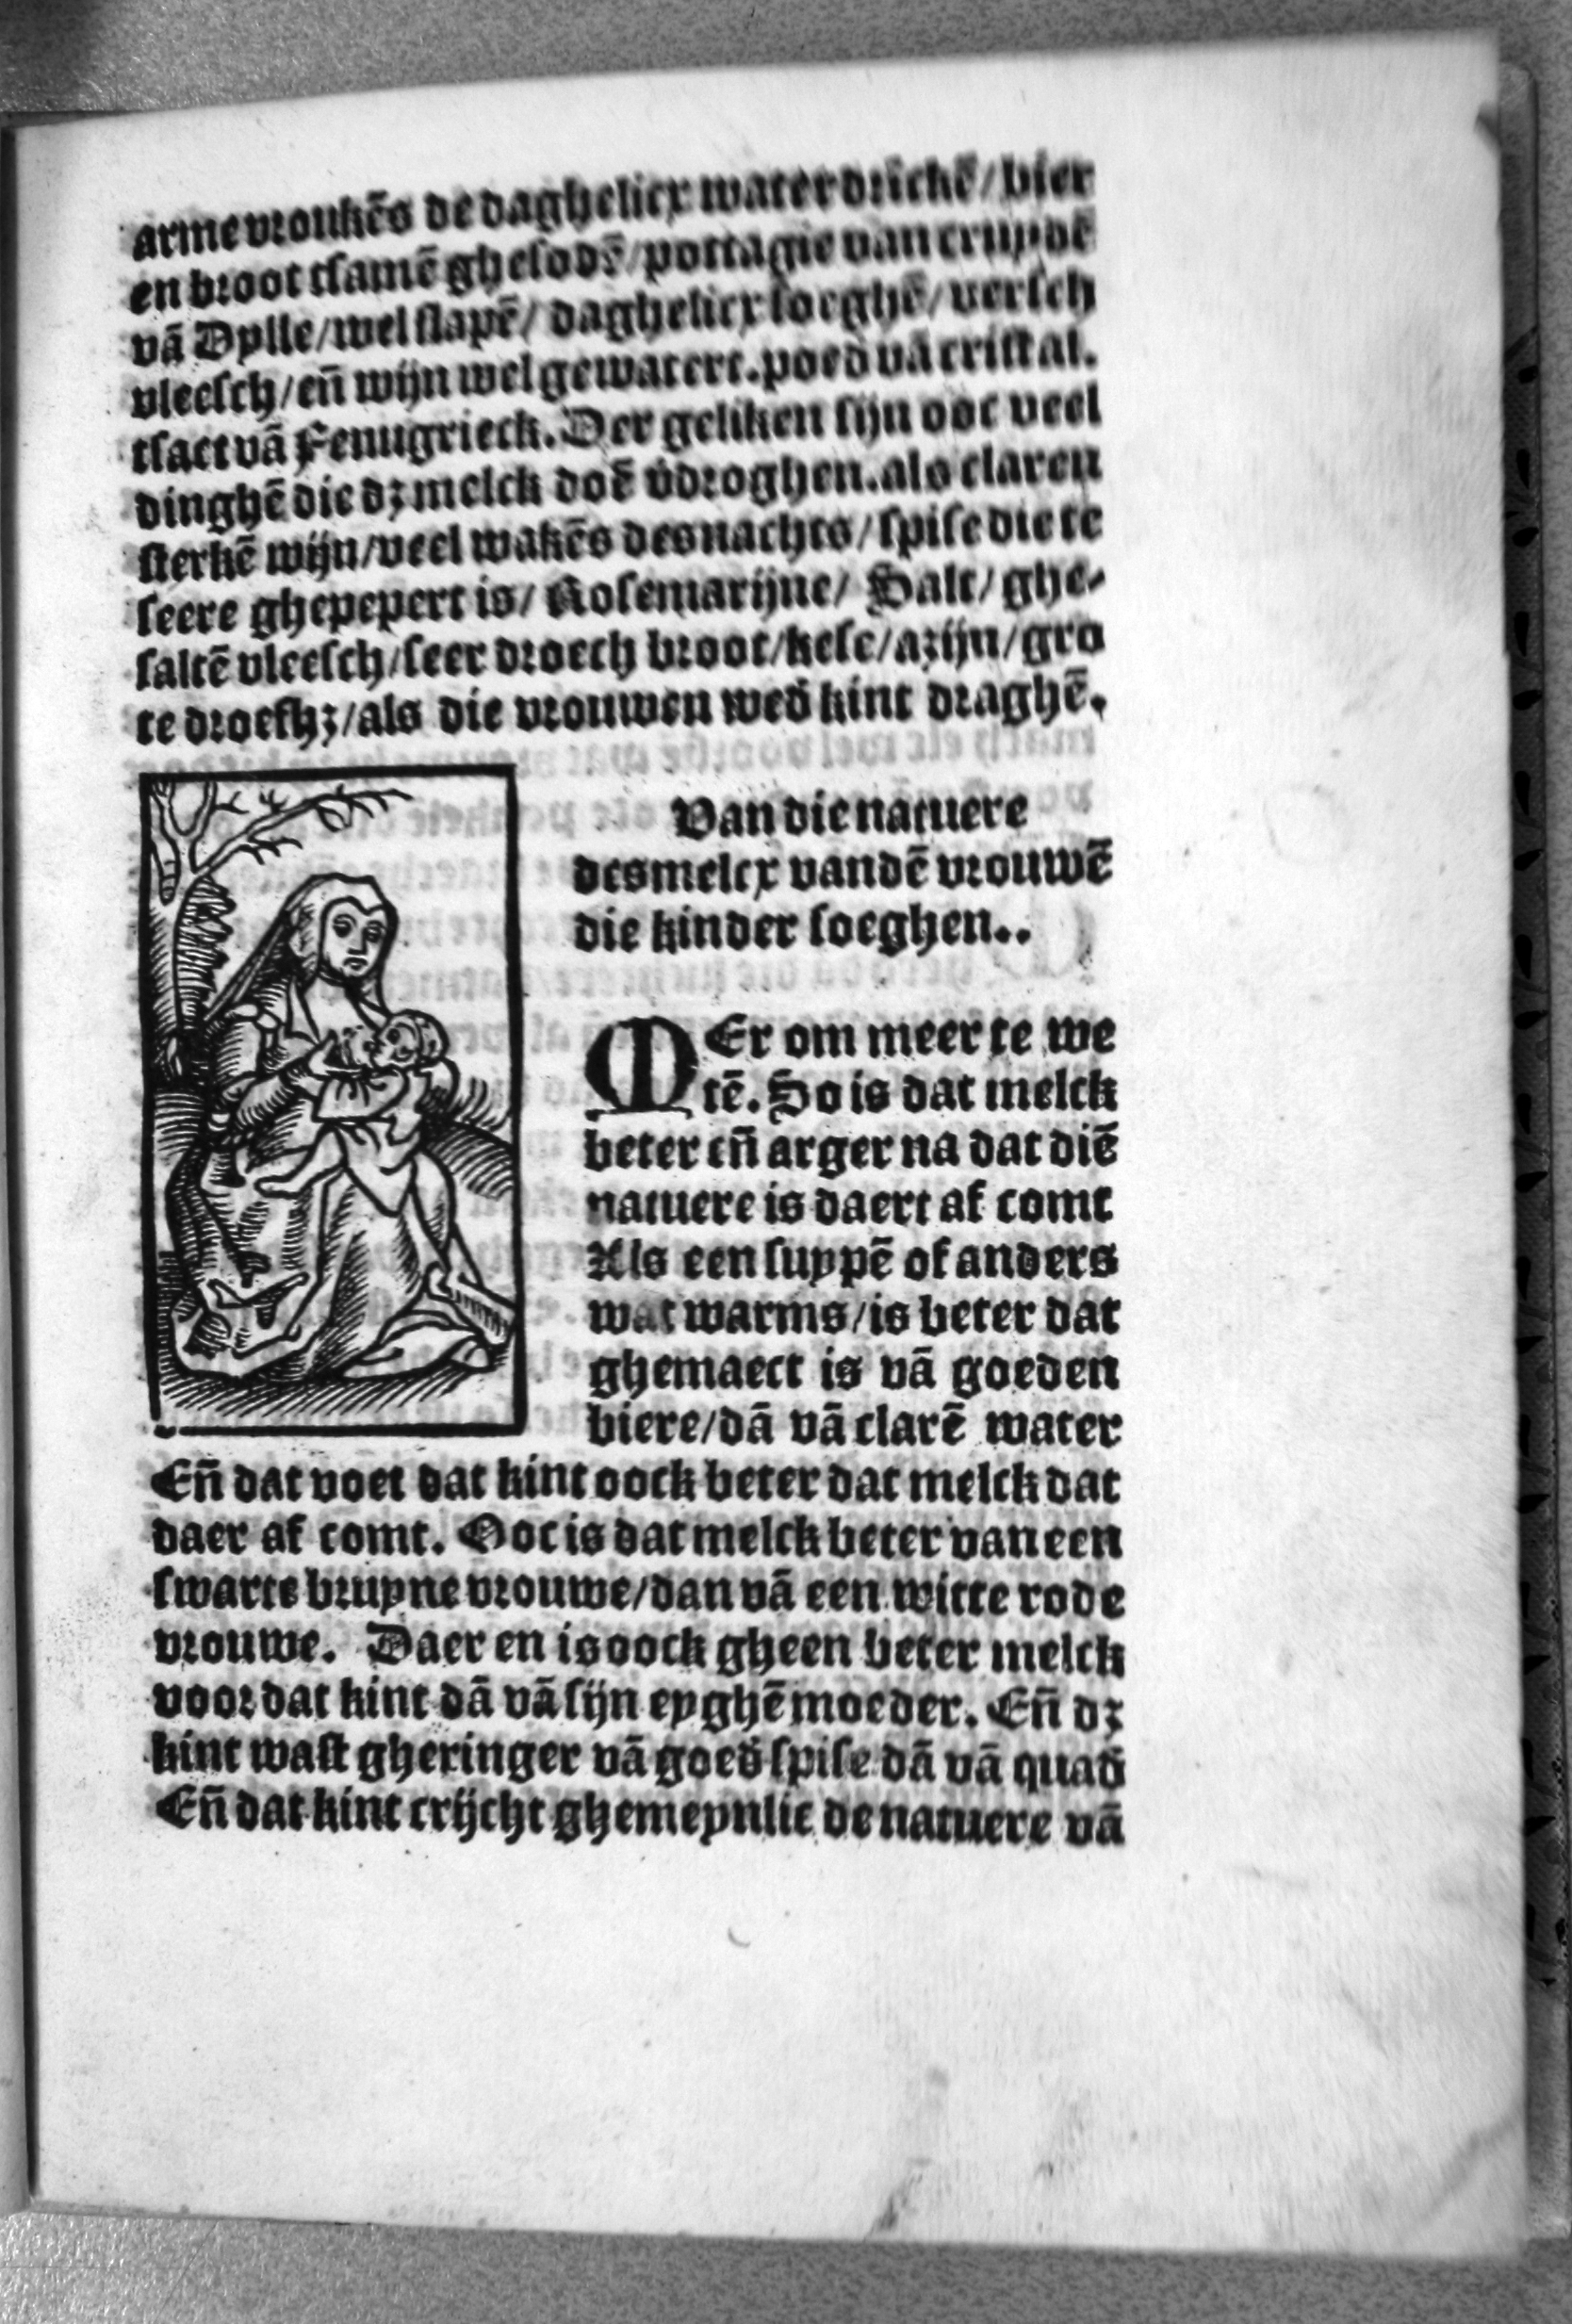 arme vroukēs de daghelicx water drīckē/bier
en broot tsamē ghesodē/pottagie van cruydē
vā Dylle/wel slapē/ daghelicx soeghē/versch
vleesch/eñ wijn wel gewatert.poed̄ vā cristal.
tsaet vā Fenugrieck. Der geliken sijn ooc veel
dinghē die dz melck doē v̄droghen.als claren
sterkē wijn/veel wakēs des nachts/spise die te
seere ghepepert is/ Rosemarijne/ Salt/ ghe-
saltē vleesch/seer droech broot/kese/azijn/gro
te droefhz/als die vrouwen wed̄ kint draghē.
Van die natuere
des melcx vandē vrouwē
die kinder soeghen..
MEr om meer te we
tē. So is dat melck
beter eñ arger na dat diē
natuere is daert af comt
Als een suppē of anders
wat warms/is beter dat
ghemaect is vā goeden
biere/dā vā clarē water
Eñ dat voet dat kint oock beter dat melck dat
daer af comt. Ooc is dat melck beter van een
swarte bruyne vrouwe/dan vā een witte rode
vrouwe. Daer en is oock gheen beter melck
voor dat kint dā vā sijn eyghē moeder. Eñ dz
kint wast gheringer vā goed̄ spise dā vā quad̄
Eñ dat kint crijcht ghemeynlic de natuere vā